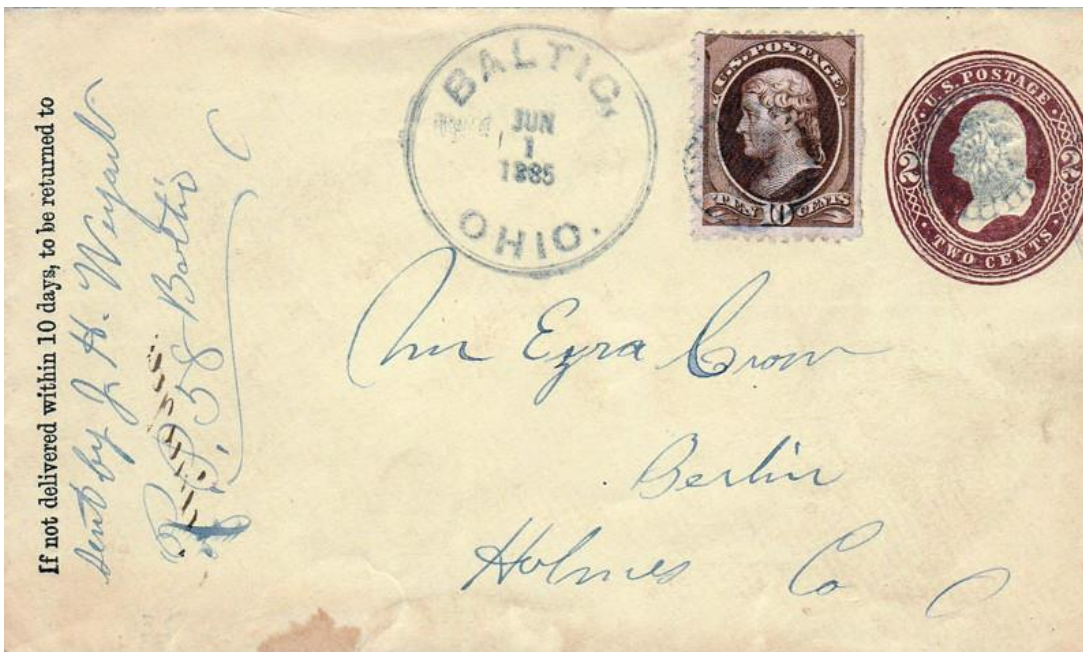 If not delivered within 10 days, to be returned to
Sent by J. H. Weyant
58 Baltic
BALTIC,
JUN
1
1885
OHIO.
U.S. POSTAGE
TEN 10 CENTS
U.S. POSTAGE
2 2
TWO CENTS
Mr Ezra Crow
Berlin
Holmes Co
O